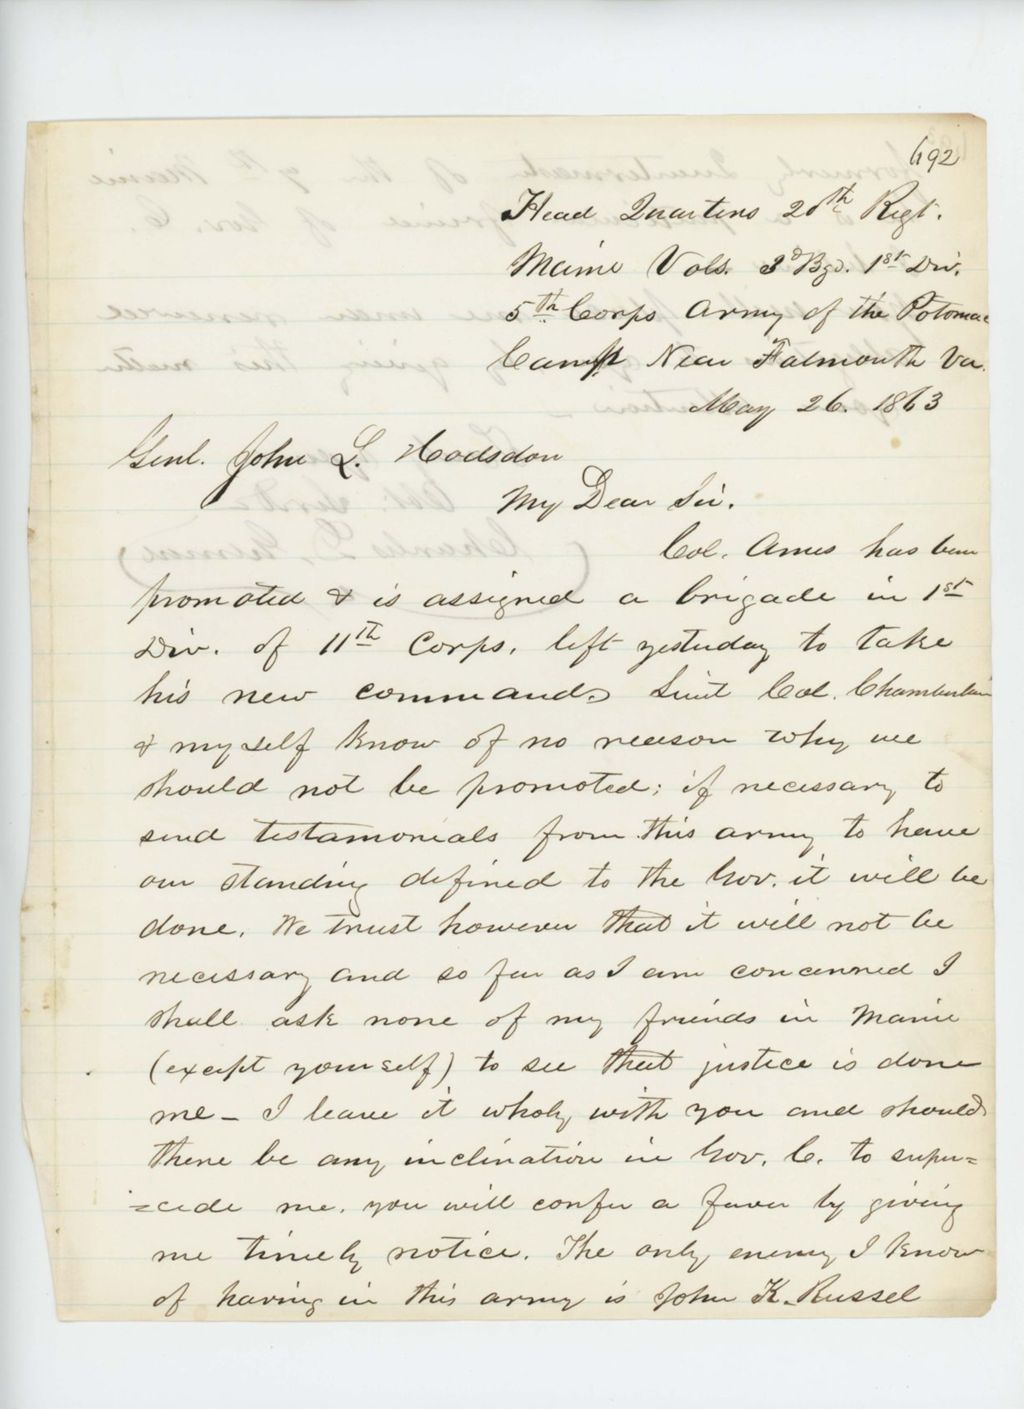 692
Head Quarters 20th Regt.
Maine Vols. 3d Bgd. 1st Div.
5th Corps Army of the Potomac
Camp Near Falmouth Va.
May 26. 1863
Genl. John L. Hodsdon
My Dear Sir.
Col. Ames has been
promoted & is assigned a brigade in 1st
Div. of 11th Corps. left yesterday to take
his new command. Lieut Col. Chamberlain
& myself know of no reason why we
should not be promoted; if necessary to
send testamonials from this army to have
our standing defined to the Gov. it will be
done. We trust however that it will not be
necessary and so far as I am concerned I
shall ask none of my friends in Maine
(except yourself) to see that justice is done
me - I leave it wholy with you and should
there be any inclination in Gov. C. to super=
=cede me. you will confer a favor by giving
me timely notice. The only enemy I know
of having in this army is John K. Russel